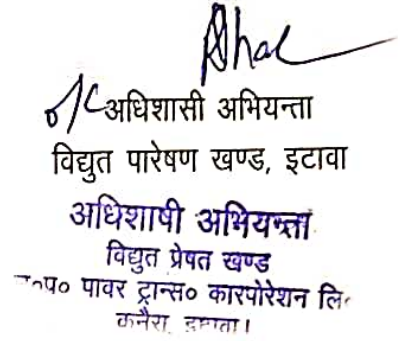 o/c अधिशासी अभियन्ता
विद्युत पारेषण खण्ड, इटावा
अधिशाषी अभियन्ता
विद्युत प्रेषत खण्ड
उ०प० पावर ट्रान्स० कारपोरेशन लि०
कनैरा,